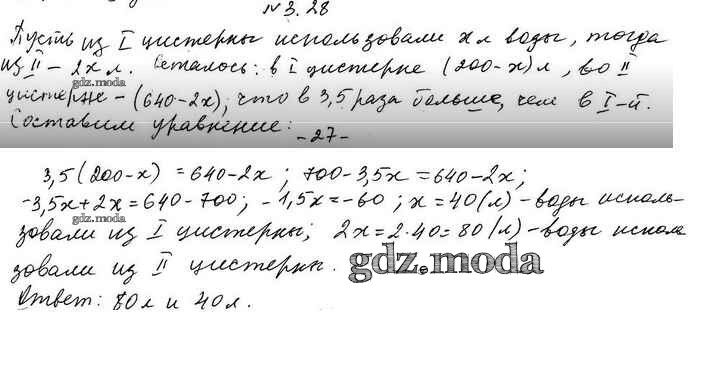 №3.28
Пусть из I цистерны использовали x л воды, тогда
из II – 2x л. Осталось: в I цистерне (200-x) л, во II
gdz.moda
цистерне – (640-2x), что в 3,5 раза больше, чем в I-й.
Составим уравнение:
-27-
3,5(200-x) = 640-2x; 700-3,5x = 640-2x;
-3,5x+2x = 640-700; -1,5x = -60; x = 40 (л) – воды исполь-
gdz.moda
зовали из I цистерны; 2x = 2·40 = 80 (л) – воды исполь
зовали из II цистерны.
gdz.moda
Ответ: 80л и 40л.